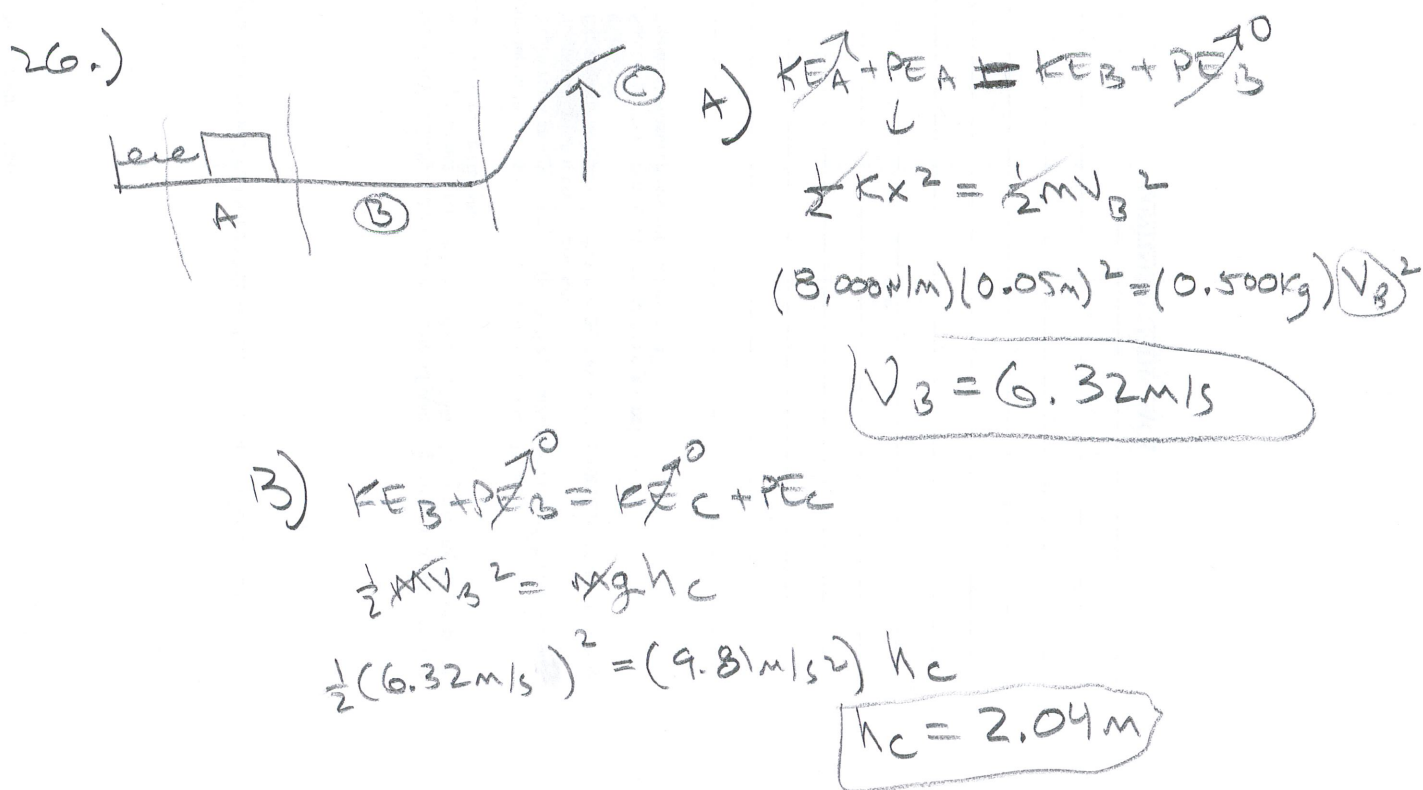 26.)
A
B
C
A) KEA + PEA = KEB + PEB 0
↓
½ Kx² = ½ mVB²
(8,000N/m)(0.05m)² = (0.500kg) VB²
VB = 6.32m/s
B) KEB + PEB 0 = KEC 0 + PEC
½ mVB² = mghc
½ (6.32m/s)² = (9.81m/s²) hc
hc = 2.04m